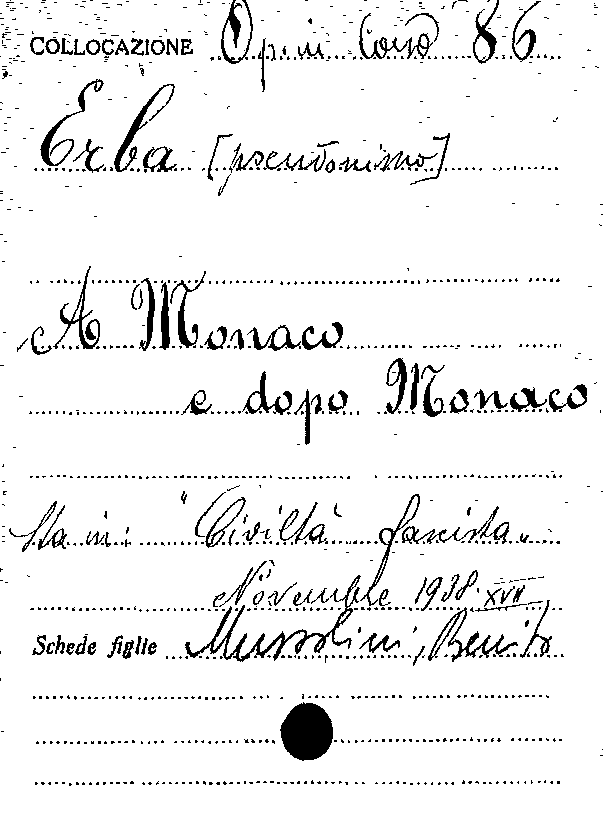 COLLOCAZIONE Op. in Corso 86
Erba [pseudonimo]
A Monaco
e dopo Monaco
Sta in: "Civiltà fascista"
Novembre 1938-XVII
Schede figlie Mussolini, Benito